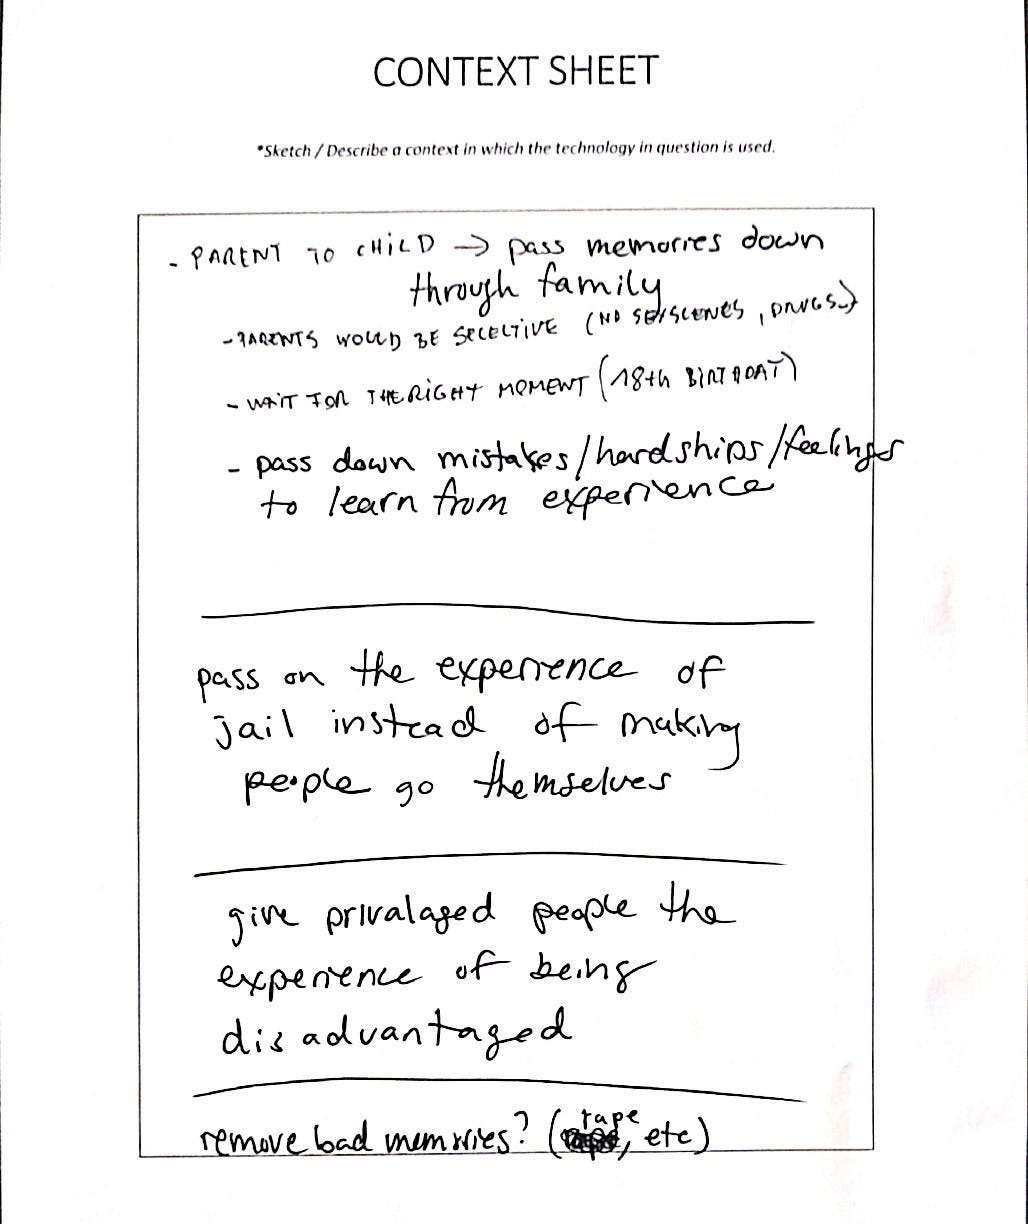 CONTEXT SHEET
*Sketch / Describe a context in which the technology in question is used.
- PARENT TO CHILD → pass memories down
through family
- PARENTS WOULD BE SELECTIVE (NO SEX SCENES, DRUGS..)
- WAIT FOR THE RIGHT MOMENT (18th BIRTHDAY)
- pass down mistakes/hardships/feelings
to learn from experience
pass on the experience of
jail instead of making
people go themselves
give privalaged people the
experience of being
disadvantaged
remove bad memories? (rape, etc)